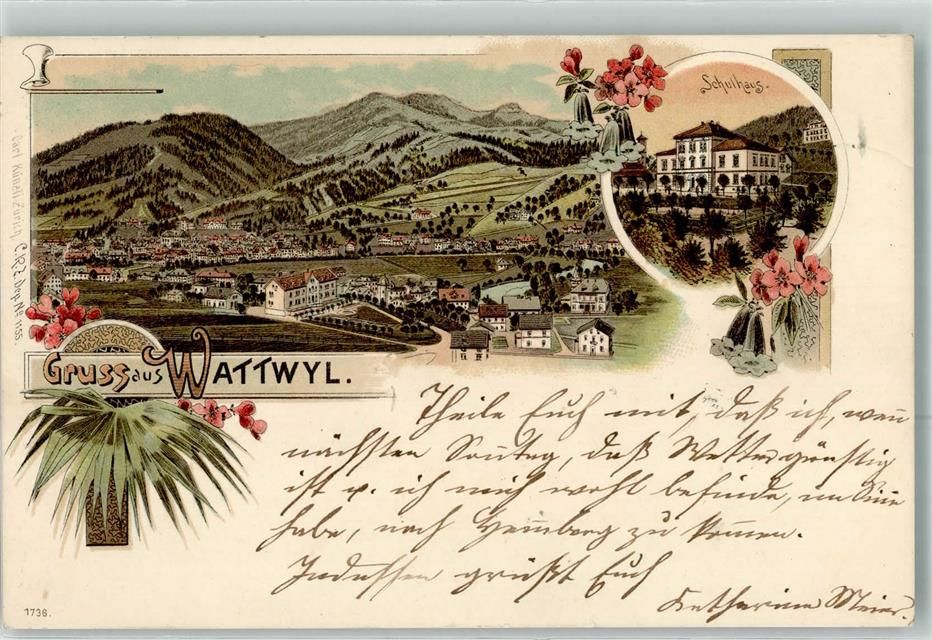 Schulhaus.
Carl Künzli Zürich C.K.Z. Dep. № 1155.
Gruss aus WATTWYL.
Theile Euch mit, daß ich, wenn
nächsten Sonntag, daß Wetter günstig
ist u. ich mich wohl befinde, im Sinne
habe, nach Hemberg zu kommen.
Indessen grüßt Euch
Katharina Meier.
1736.